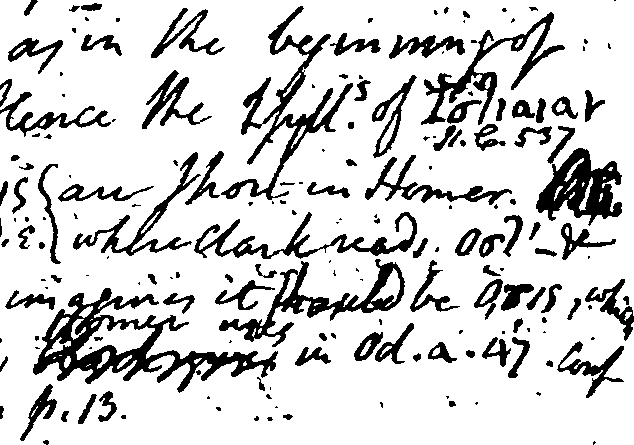 as in the beginning of
Hence the Syll.s of
Il. 6. 537
are short in Homer.
where Clark reads
imagines it should be which
Homer uses
in Od. a. 47. Conf
p. 13.